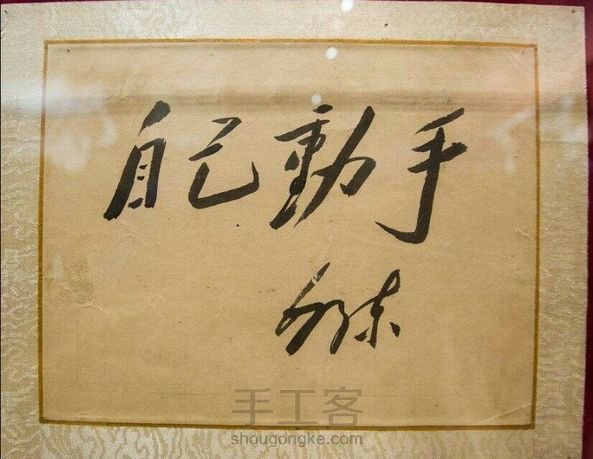 自己動手
手工客
shougongke.com